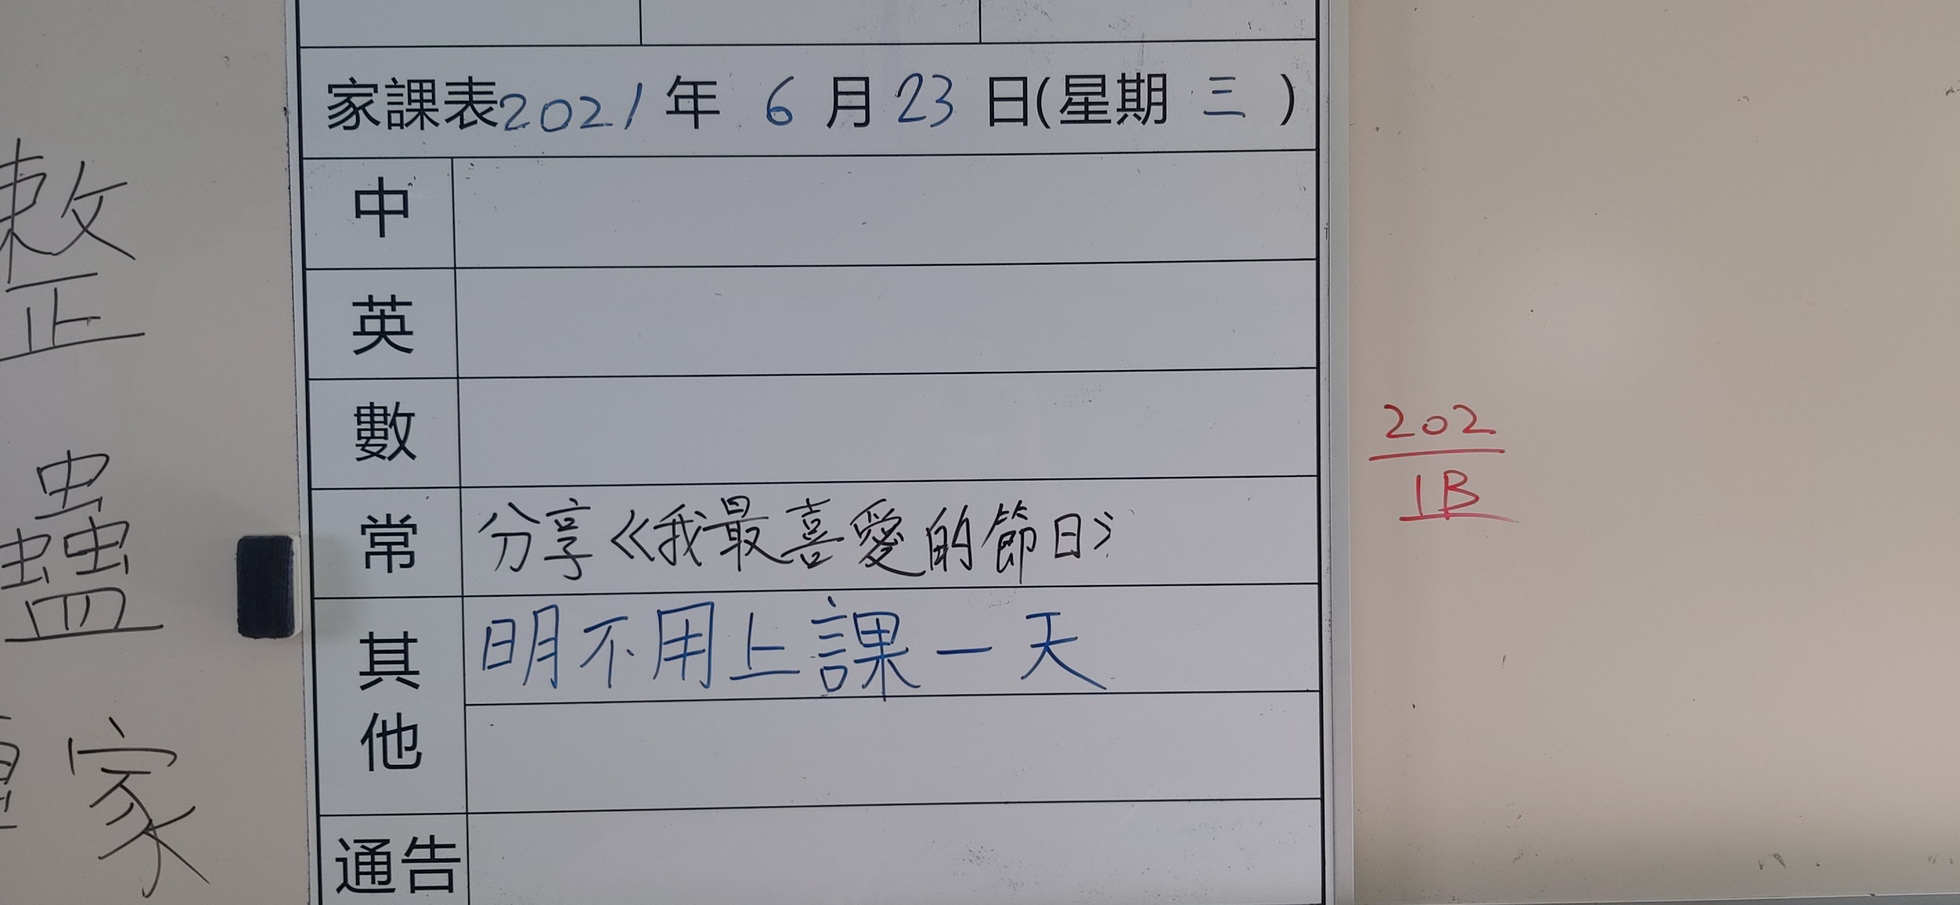 家課表2021年 6 月 23 日(星期 三 )
中
英
數
常 分享《我最喜愛的節日》
其他 明不用上課一天
通告
整
蠱
家
202
1B